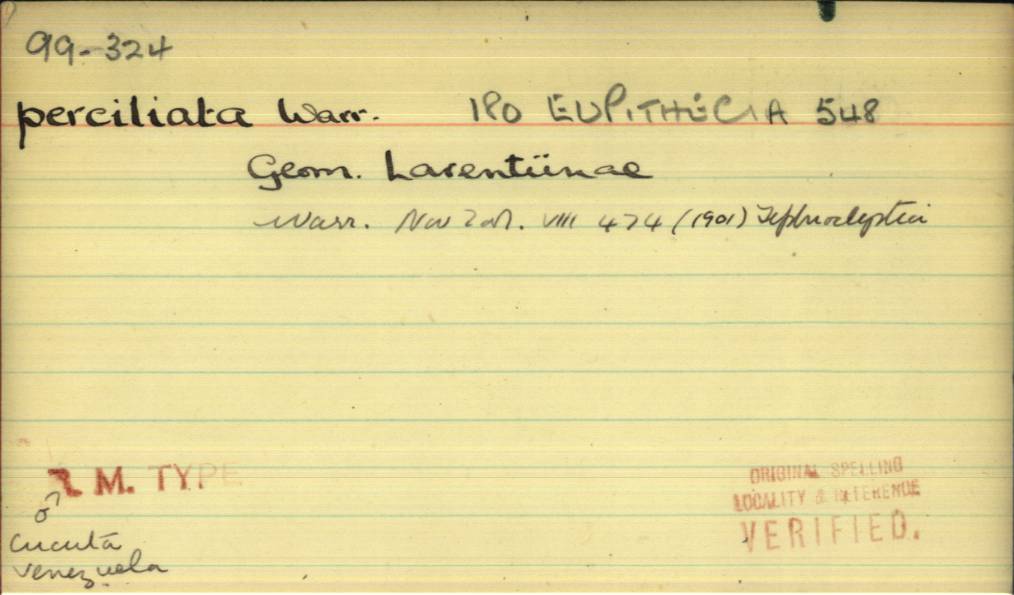 99-324
perciliata Warr. 180 EUPITHECIA 548
Geom. Larentiinae
Warr. Nov Zool. VIII 474 (1901) Tephroclystia
M. TYPE
♂
Cucuta
Venezuela
ORIGINAL SPELLING
LOCALITY & REFERENCE
VERIFIED.